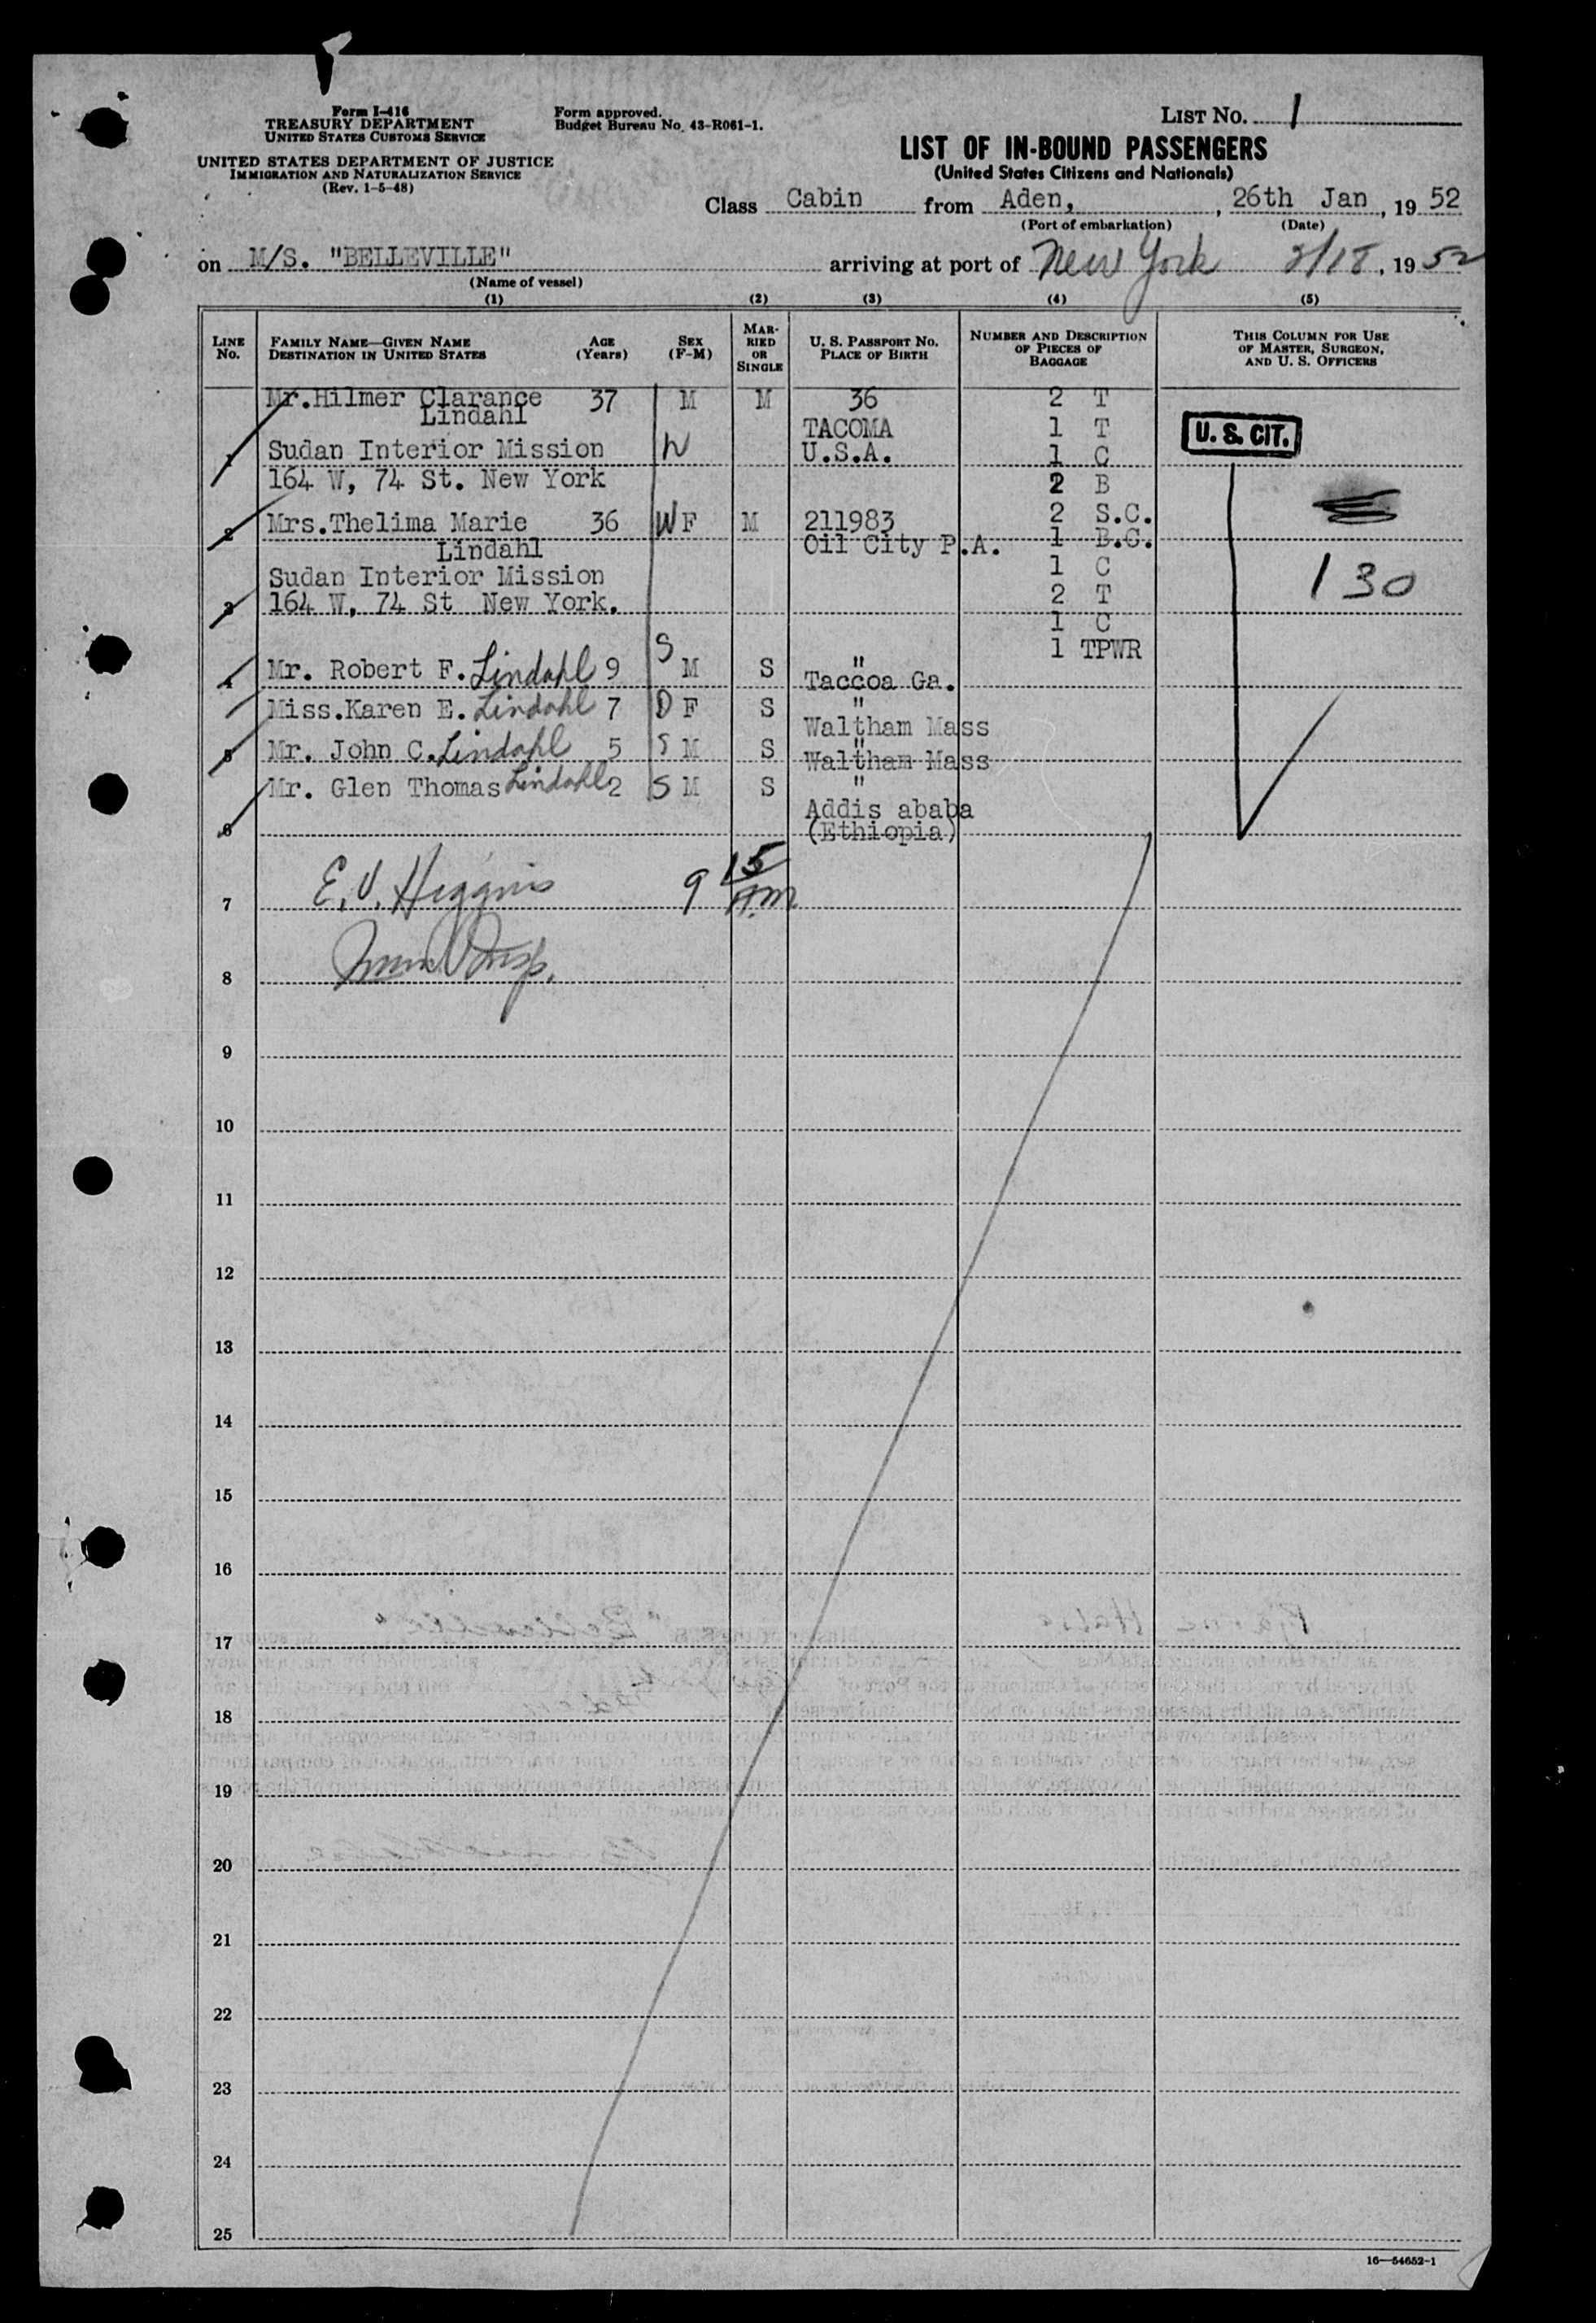 Form I-416
TREASURY DEPARTMENT
UNITED STATES CUSTOMS SERVICE
UNITED STATES DEPARTMENT OF JUSTICE
IMMIGRATION AND NATURALIZATION SERVICE
(Rev. 1-5-48)
Form approved.
Budget Bureau No. 43-R061-1.
LIST No. 1
LIST OF IN-BOUND PASSENGERS
(United States Citizens and Nationals)
Class Cabin from Aden, , 26th Jan , 19 52
(Port of embarkation) (Date)
on M/S. "BELLEVILLE" arriving at port of New York 2/18 , 19 52
(Name of vessel)
(1) (2) (3) (4) (5)
LINE No.
FAMILY NAME—GIVEN NAME
DESTINATION IN UNITED STATES
AGE (Years)
SEX (F-M)
MARRIED OR SINGLE
U. S. PASSPORT NO.
PLACE OF BIRTH
NUMBER AND DESCRIPTION OF PIECES OF BAGGAGE
THIS COLUMN FOR USE OF MASTER, SURGEON, AND U. S. OFFICERS
Mr.Hilmer Clarance 37 M M 36 2 T
Lindahl TACOMA 1 T
U. S. CIT.
1 Sudan Interior Mission U.S.A. 1 C
164 W, 74 St. New York 2 B
2 Mrs.Thelima Marie 36 W F M 211983 2 S.C.
Lindahl Oil City P.A. 1 B.C.
Sudan Interior Mission 1 C
130
3 164 W, 74 St New York. 2 T
1 C
S 1 TPWR
4 Mr. Robert F. Lindahl 9 M S "
Taccoa Ga.
Miss.Karen E. Lindahl 7 D F S "
Waltham Mass
5 Mr. John C. Lindahl 5 S M S "
Waltham Mass
Mr. Glen Thomas Lindahl 2 S M S "
Addis ababa
6 (Ethiopia)
7 E. V. Higgins 9 15 A.M.
8 Insp.
9
10
11
12
13
14
15
16
17
18
19
20
21
22
23
24
25
16—54652-1